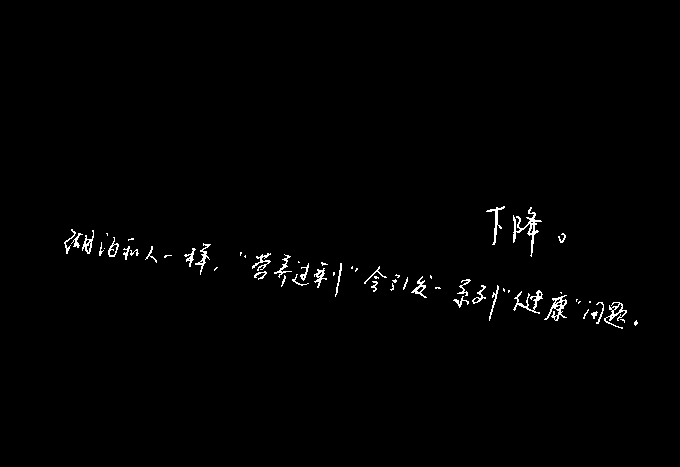 下降。
湖泊和人一样，“营养过剩”会引发一系列“健康”问题。